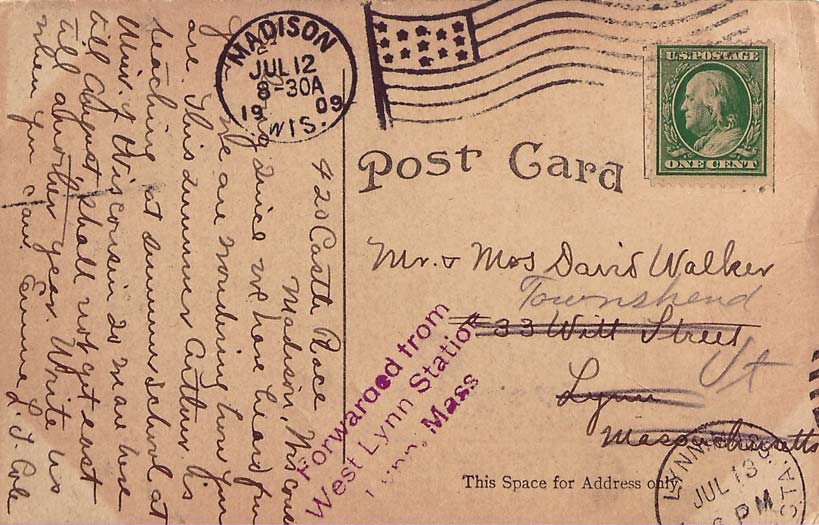 MADISON
JUL 12
8-30A
1909
WIS.
U.S. POSTAGE
ONE CENT
Post Card
420 Castle Place
Madison, Wiscons
since we have heard from
you. We are wondering how you
are. This summer Arthur is
teaching at summer school at
Univ. of Wisconsin so
till August. Shall not get east
till another year. Write us
when you can. Emma L. J. Cole
Mr. & Mrs David Walker
Townshend
33 Witt Street
Vt
Lynn
Massachusetts
Forwarded from
West Lynn Station
Lynn, Mass
This Space for Address only.
LYNN MASS.
JUL 13
PM
STA